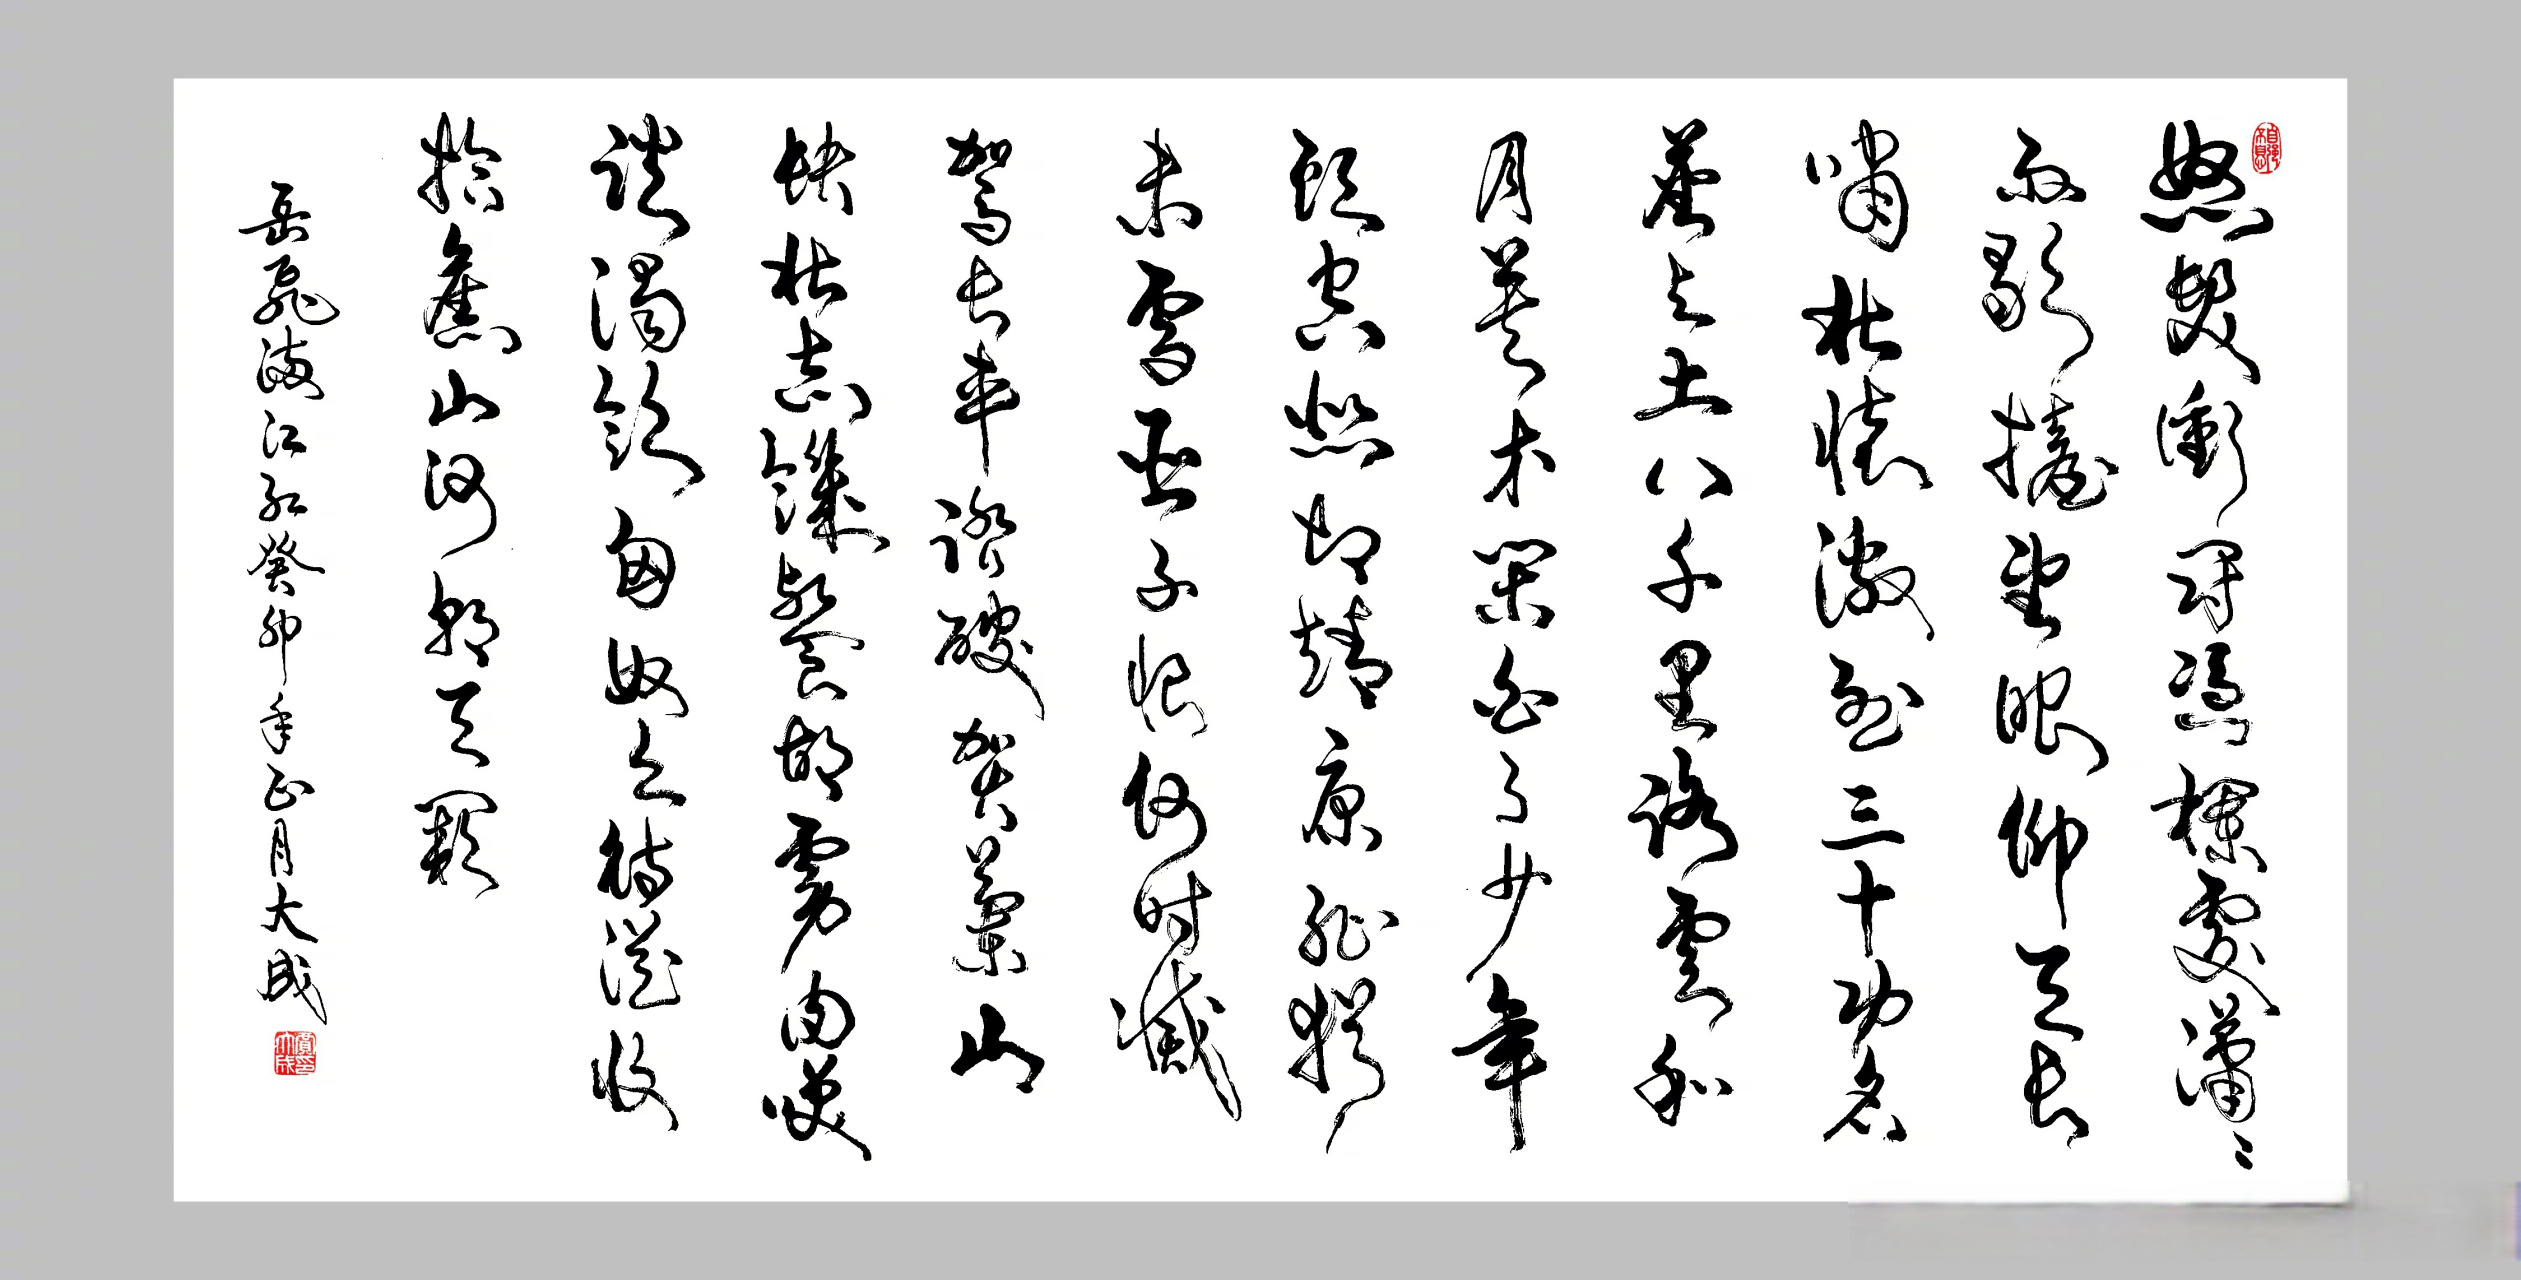 怒髮衝冠憑欄處瀟〻
雨歇擡望眼仰天長
嘯壯懷激烈三十功名
塵與土八千里路雲和
月莫等閑白了少年
頭空悲切靖康恥猶
未雪臣子恨何时滅
駕長車踏破賀蘭山
缺壯志饑餐胡虜肉笑
談渴飲匈奴血待從收
拾舊山河朝天闕
岳飛滿江紅癸卯年正月大成